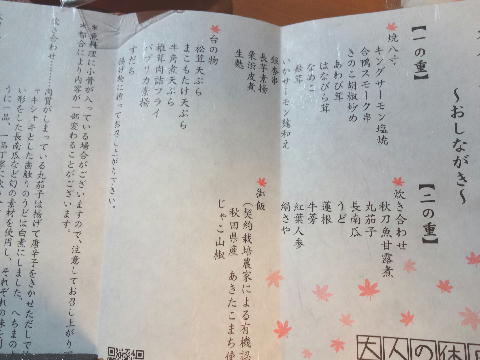 ～おしながき～
【一の重】
焼八寸
キングサーモン塩焼
合鴨スモーク串
きのこ胡椒炒め
あわび茸
はなびら茸
なめこ
いかサーモン絹和え
銀杏串
長芋素揚
栗渋皮煮
生麩
台の物
松茸天ぷら
まこもたけ天ぷら
牛角煮天ぷら
椎茸肉詰フライ
パプリカ素揚
すだち
【二の重】
炊き合わせ
秋刀魚甘露煮
丸茄子
長南瓜
うど
蓮根
牛蒡
紅葉人参
絹さや
御飯
（契約栽培農家による有機認
秋田県産 あきたこまち使
じゃこ山椒
※魚料理に小骨が入っている場合がございますので、注意してお召し上がり下
※都合により内容が一部変わることがございます。
大人の休日